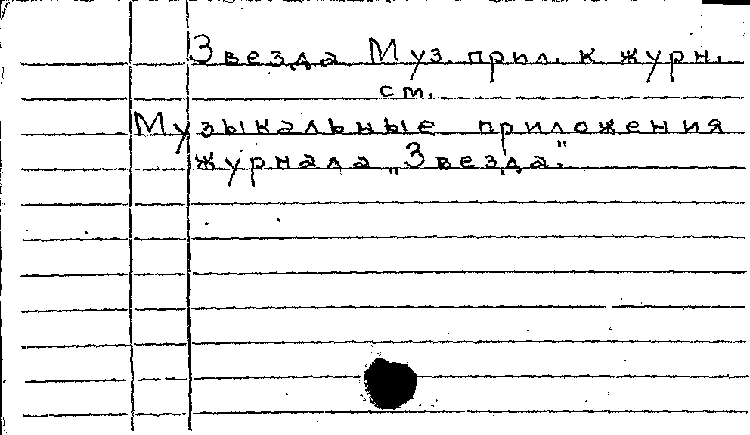 Звезда Муз. прил. к журн.
см.
Музыкальные приложения
журнала „Звезда".